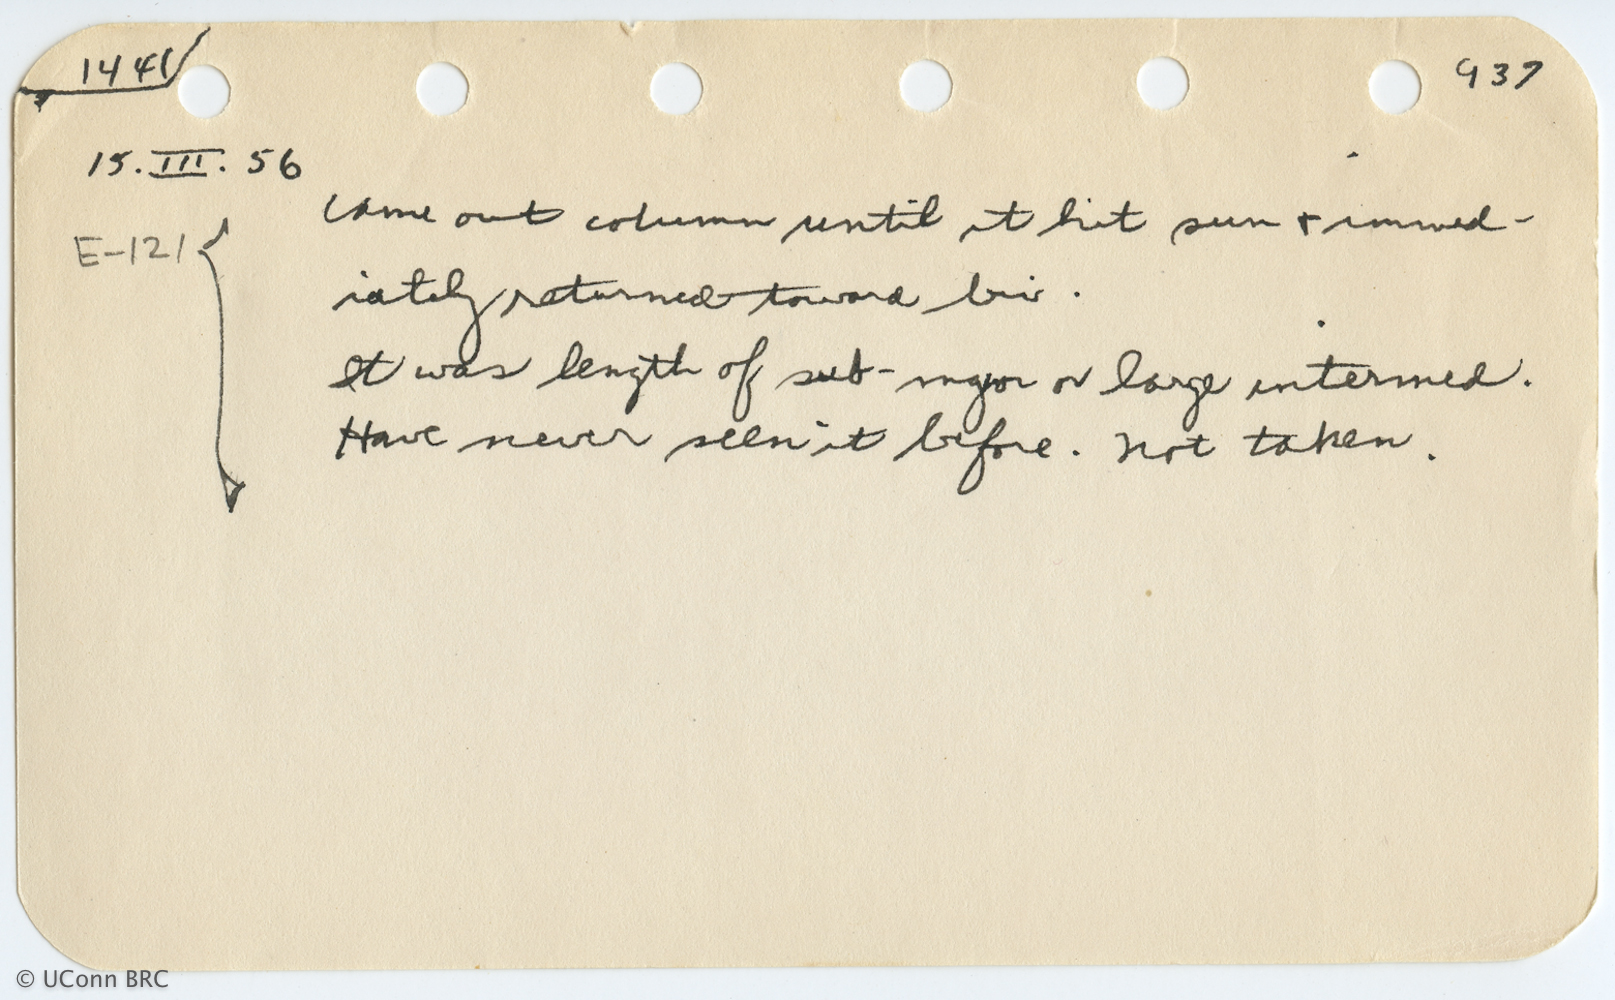 1441
937
15.III.56
came out column until it hit sun & immed-
E-121
iately returned toward biv.
It was length of sub-major or large intermed.
Have never seen it before. Not taken.
© UConn BRC